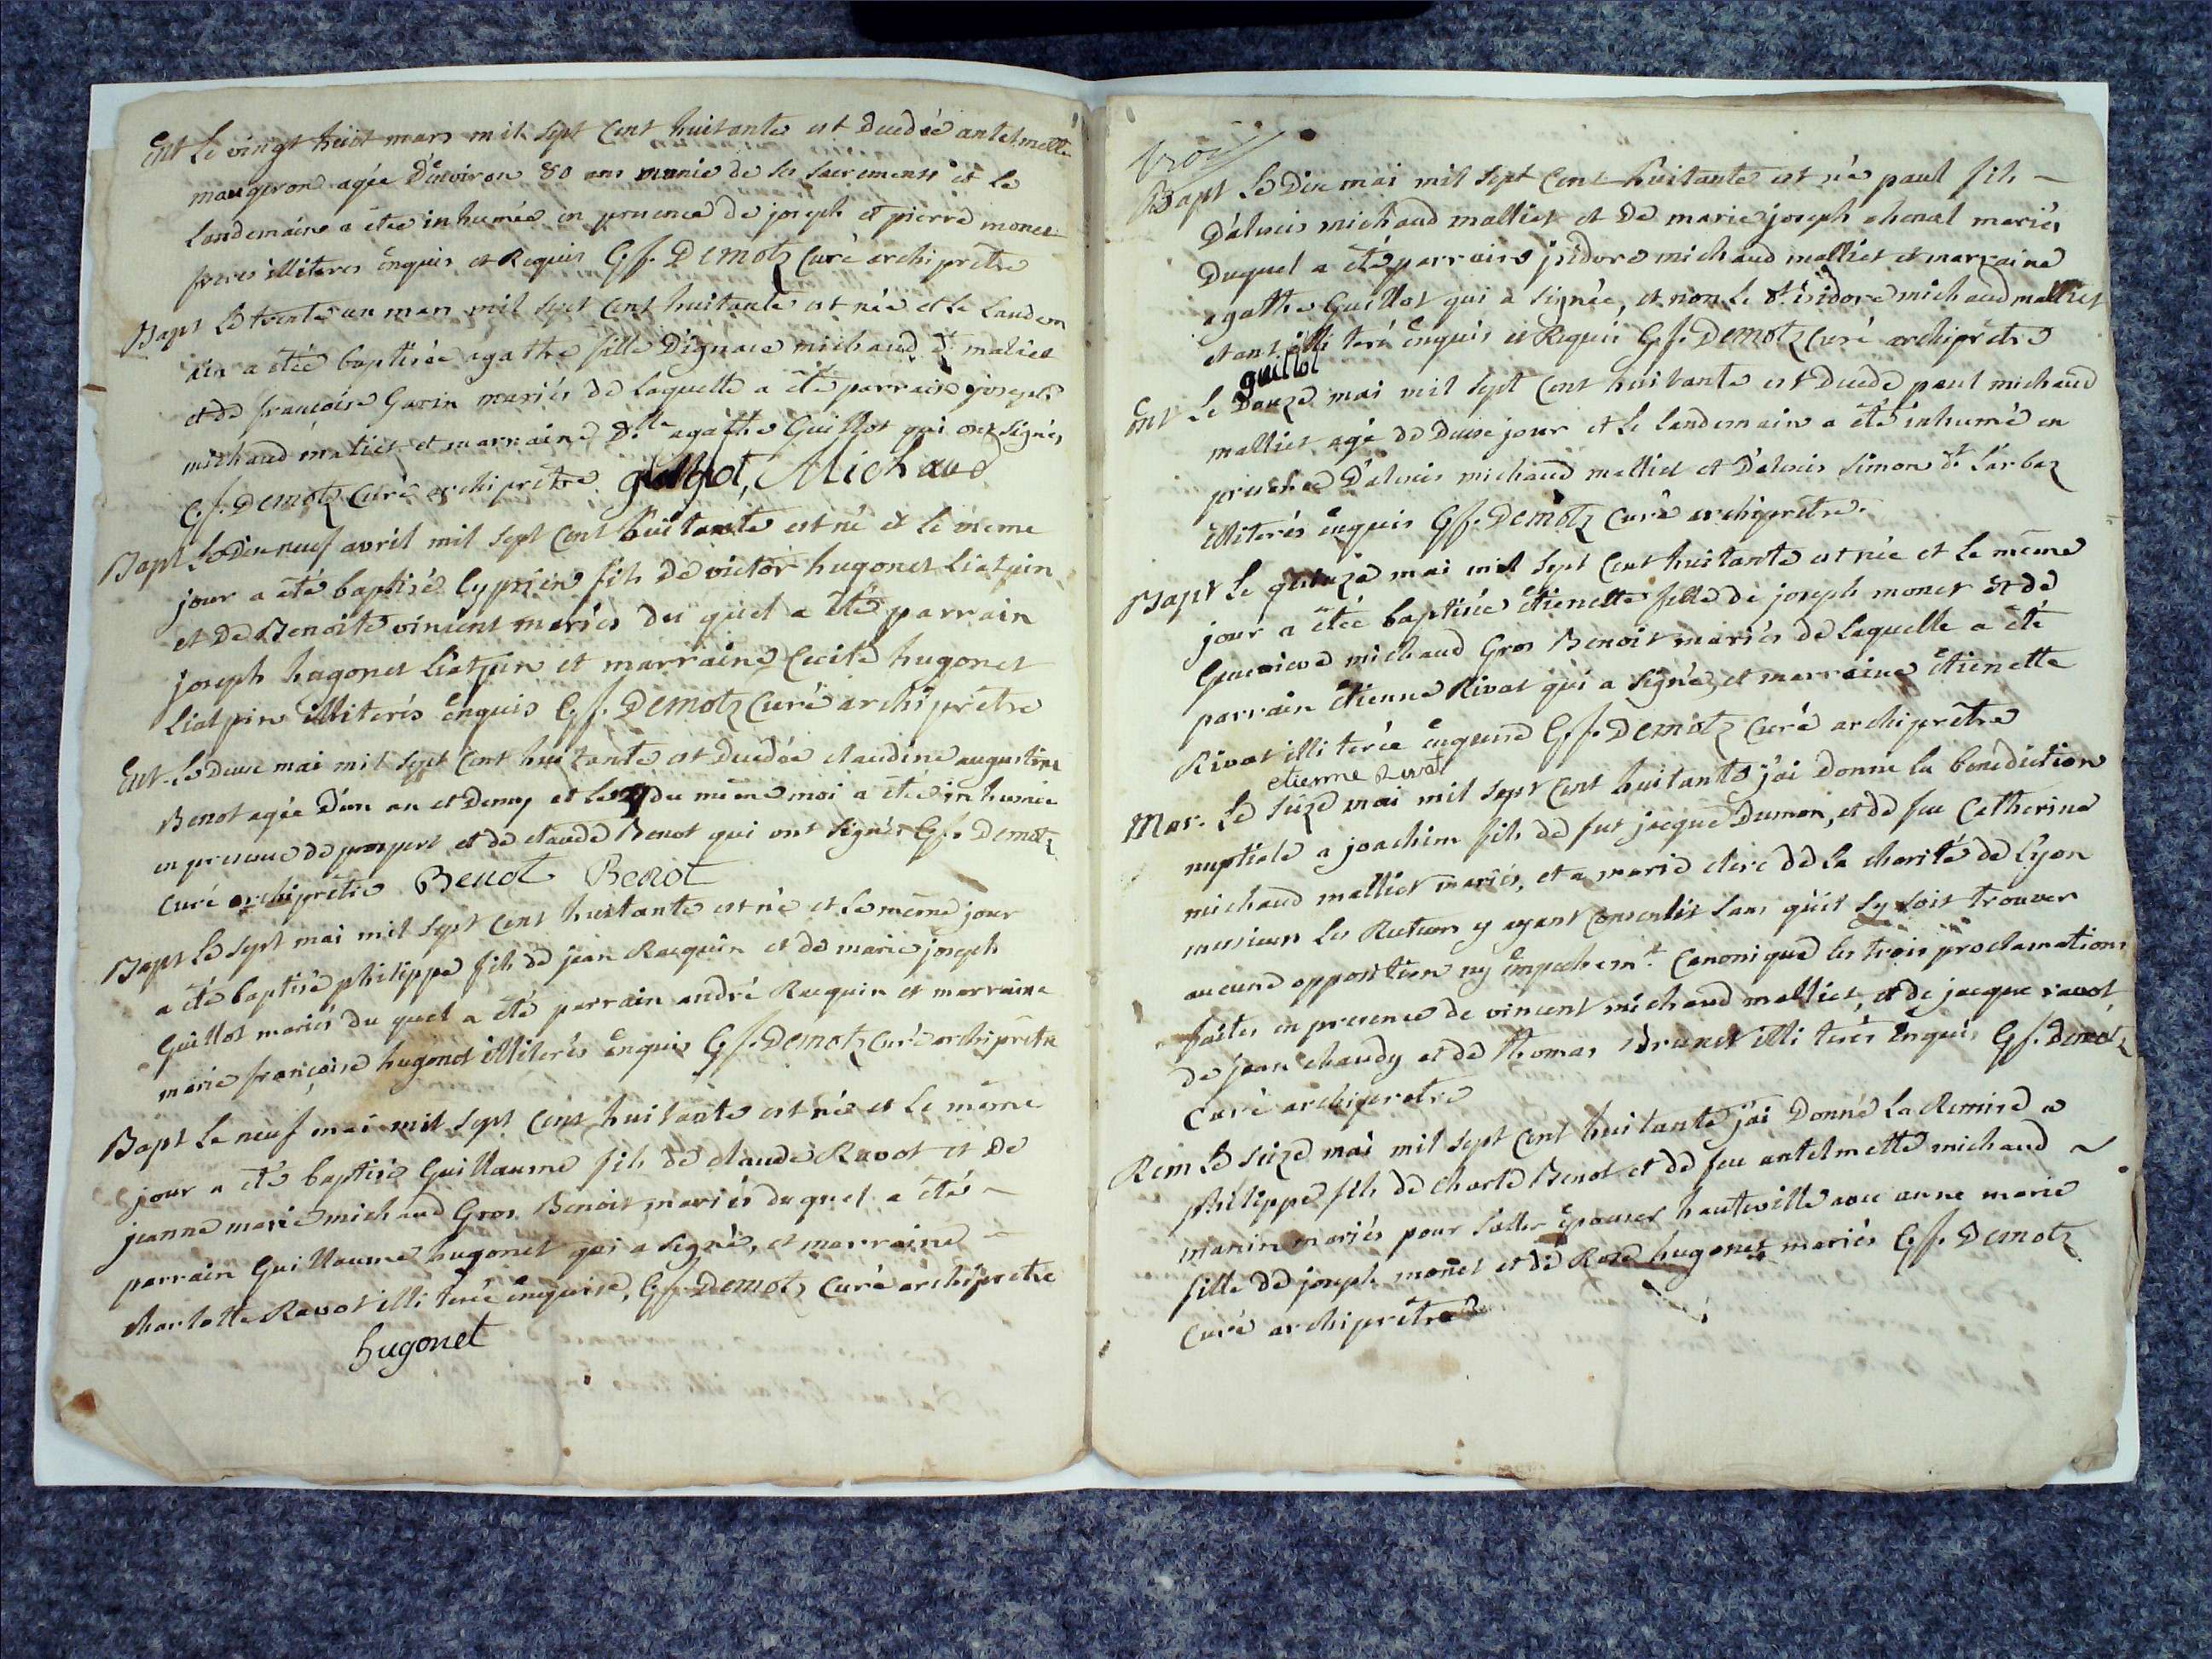 Ent Le vingt huit mars mil sept cent huitante est decedée antelmette
maugeron agée d'environ 80 ans munie de ses sacrements et le
landemaine a étée inhumée en presence de joseph et pierre monet
freres illiteres enquis et Requis C. f. Demotz Curé archiprêtre
Bapt Le trente un mars mil sept cent huitante est née et le landem
ain a étée baptisée agathe fille D'ignace michaud dt maliet
et de françoise Gavin mariés de laquelle a été parrain joseph
michaud maliet et marraine Dlle agathe Guillot qui ont signés
C. f. Demotz Curé archiprêtre guillot, Michaud
Bapt Le Dix neuf avril mil sept cent huitante est né et le meme
jour a été baptisé Cyprien fils de victor hugonet Liatpin
et de Benoite vincent mariés du quel a été parrain
joseph hugonet Liatpin et marraine Cecile hugonet
Liatpin illiterés enquis C. f. Demotz Curé archiprêtre
Ent. Le Deux mai mil sept cent huitante est decedée claudine augustine
Benot agée d'un an et demy et le du même moi a étée inhumée
en presence de prospert et de claude Benot qui ont signés C. f. Demotz
Curé archiprêtre Benot Benot
Bapt Le sept mai mil sept cent huitante est né et le même jour
a été baptisé philippe fils de jean Racquin et de marie joseph
Guillot mariés du quel a été parrain andré Racquin et marraine
marie françoise hugonet illiterés enquis C. f. Demotz Curé archiprêtre
Bapt Le neuf mai mil sept cent huitante est né et le même
jour a été baptisé Guillaume fils de claude Ravot et de
jeanne marie michaud Gros Benoit mariés duquel a été
parrain Guillaume hugonet qui a signé, et marraine
charlotte Ravot illiterée enquise, C. f. Demotz Curé archiprêtre
hugonet
Bapt Le Dix mai mil sept cent huitante est né paul fils
D'alexis michaud malliet et de marie joseph chenal mariés
Duquel a été parrain isidore michaud malliet et marraine
agathe Guillot qui a signée, et non le dt isidore michaud malliet
etant illiteré enquis et Requis C. f. Demotz Curé archiprêtre
guillot
Ent Le Douze mai mil sept cent huitante est decedé paul michaud
malliet agé de deux jour et le landemain a été inhumé en
presence d'alexis michaud malliet et d'alexis Simon dt Larbaz
illiterés enquis C. f. Demotz Curé archiprêtre.
Bapt Le quinze mai mil sept cent huitante est née et le même
jour a étée baptisée étienette fille de joseph monet et de
Genevieve michaud Gros Benoit mariés de laquelle a été
parrain étienne Rivat qui a signé, et marraine étienette
Rivat illiterée enquise C. f. Demotz Curé archiprêtre
etienne rivat
Mar. Le seize mai mil sept cent huitante j'ai Donné la benediction
nuptiale a joachim fils de feu jacque Dumon, et de feu Catherine
michaud malliet mariés, et a marie clerc de la charité de Lyon
messieurs les Recteurs y ayant consentis sans qu'il sy soit trouver
aucune opposition ny empechemt. Canonique les trois proclamations
faites en presence de vincent michaud malliet, et de jacque ravot
de jean chaudy et de thomas Brunet illiterés enquis C. f. Demotz
Curé archiprêtre
Rem Le seize mai mil sept cent huitante j'ai Donné la Remise a
philippe fils de charle Benot et de feu antelmette michaud
manin mariés pour s'aller épouser hauteville avec anne marie
fille de joseph monet et de Rose hugonet mariés C. f. Demotz
Curé archiprêtre